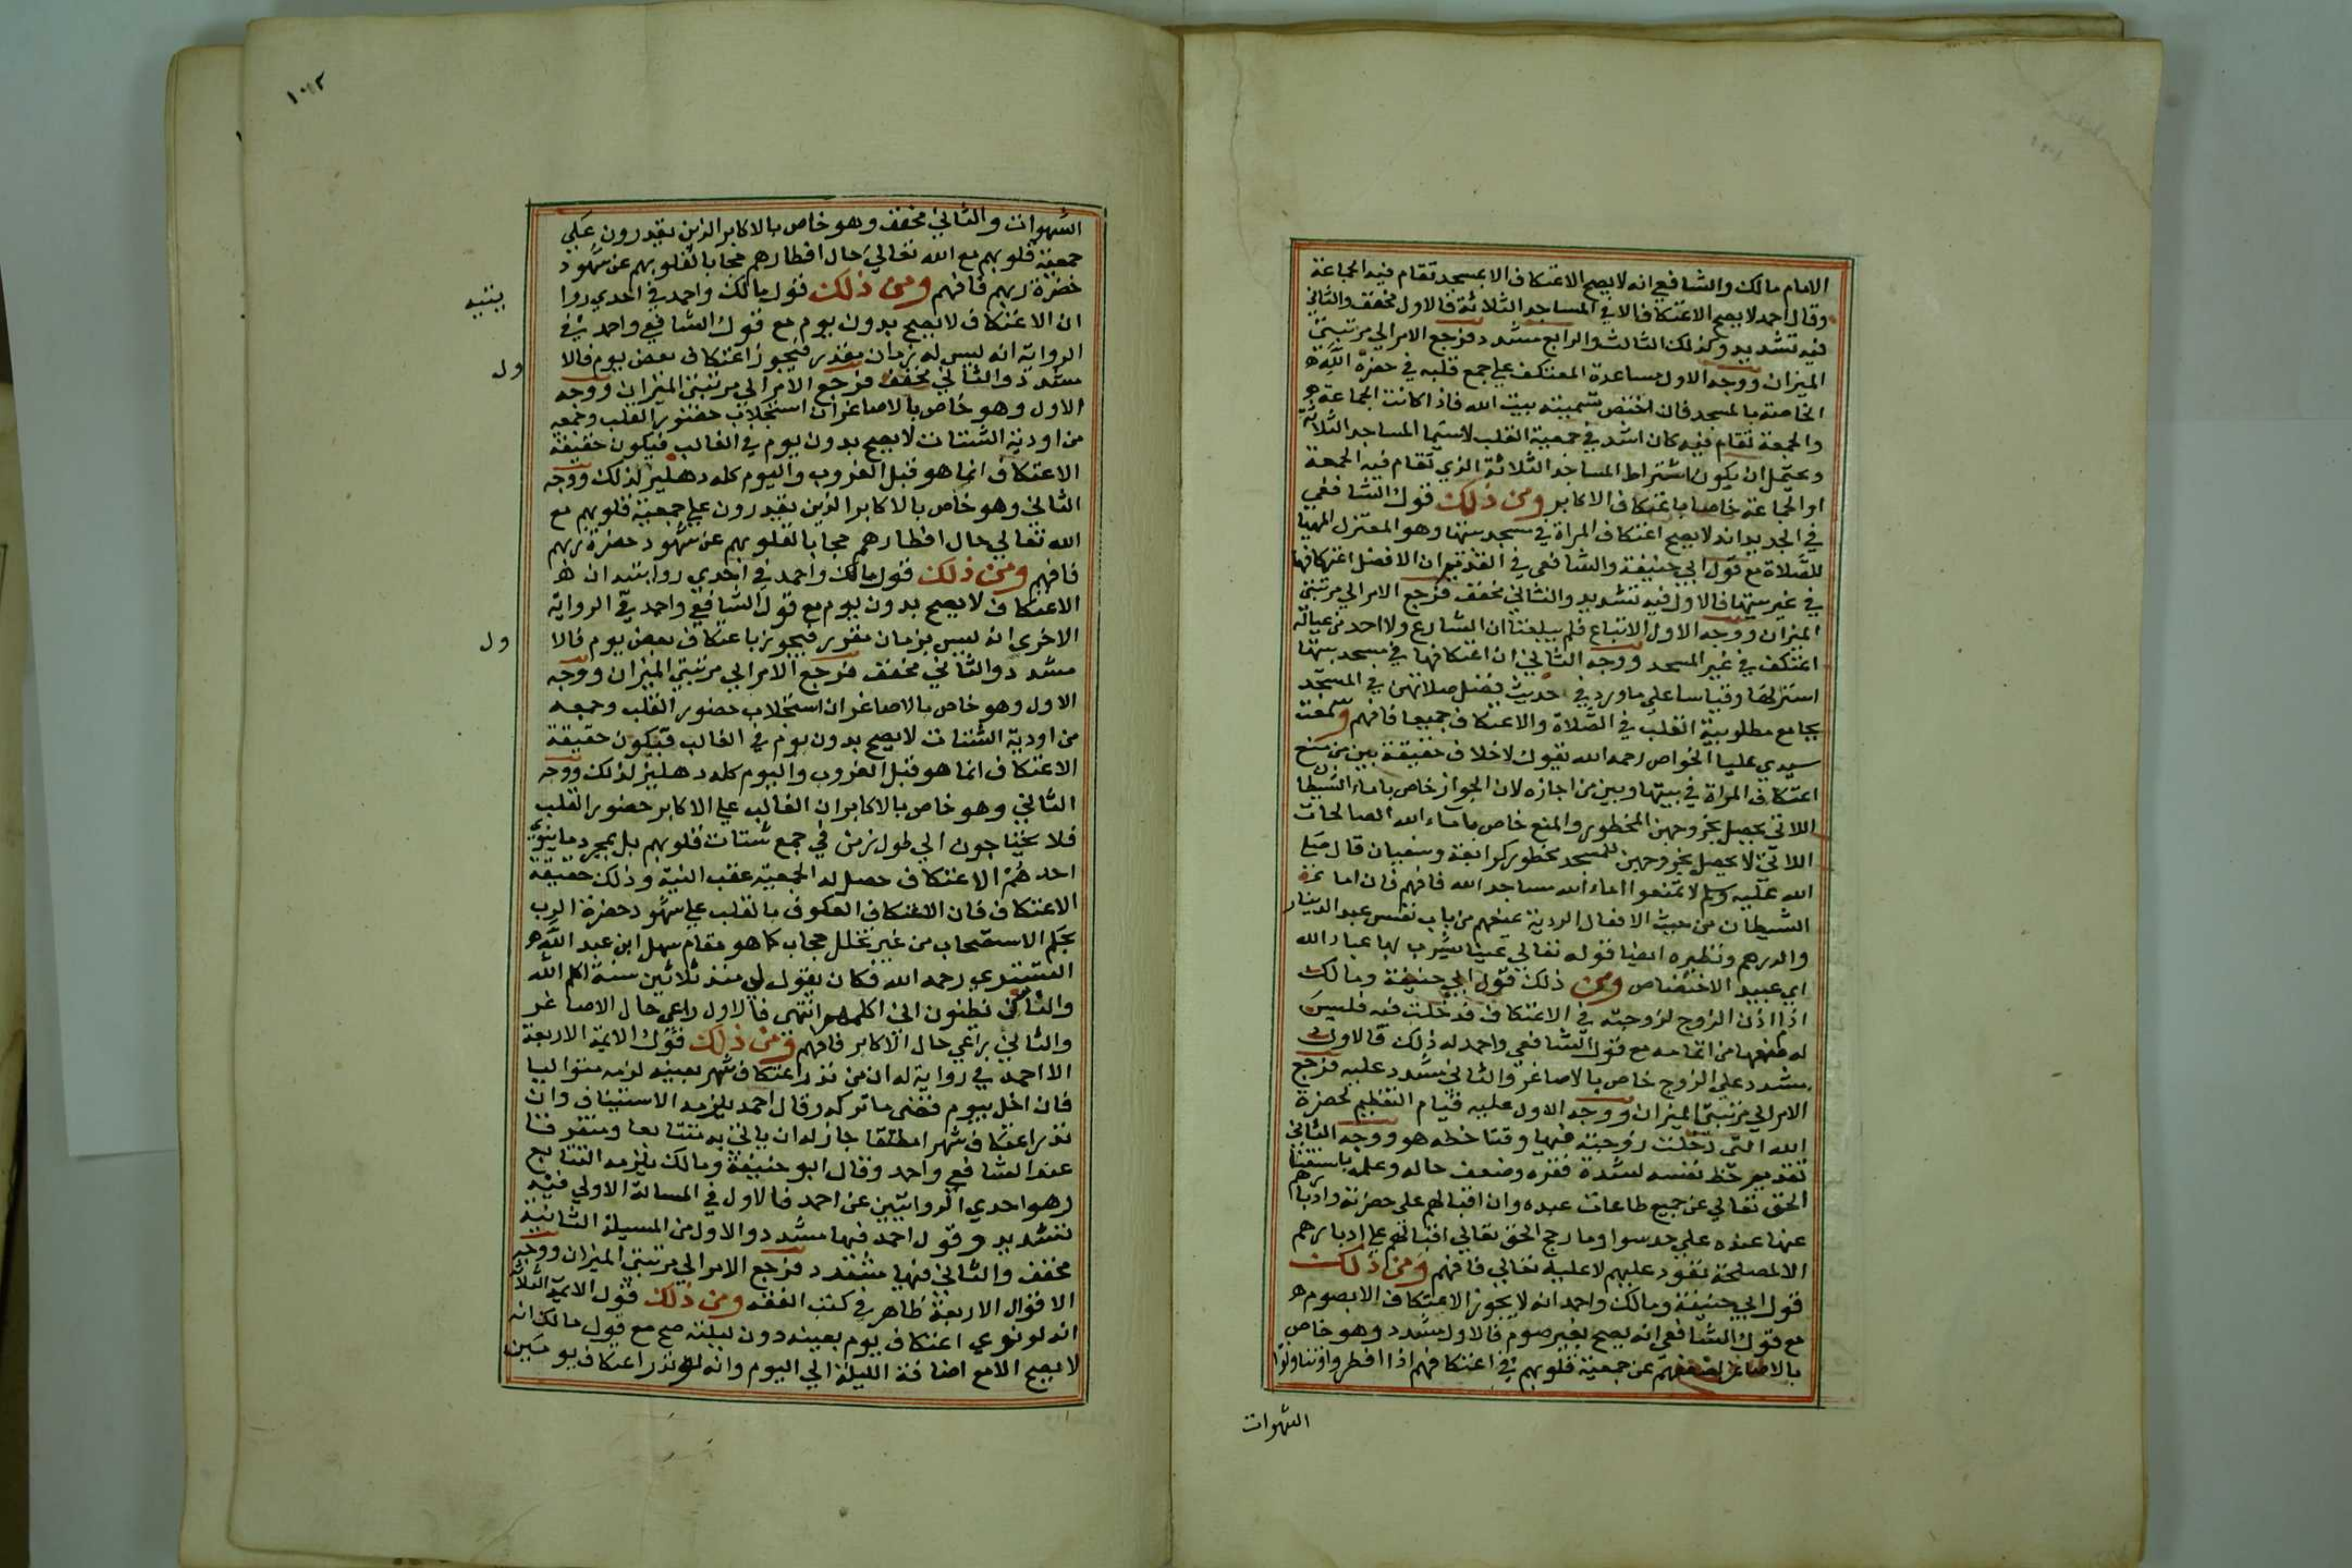 الامام مالك والشافعي انه لا يصح الاعتكاف الا بمسجد تقام فيه الجماعة
وقال احمد لا يصح الاعتكاف الا في المساجد الثلاثة فالاول مخفف والثاني
فيه تشديد وكذلك الثالث والرابع مشدد فرجع الامر الي مرتبتي
الميزان ووجه الاول مساعدة المعتكف علي جمع قلبه في حضرة الله
الخاصة بالمسجد فان اختص تسميته بيت الله فاذا كانت الجماعة
والجمعة تقام فيه كان اشد في جمعية القلب لاسيما المساجد الثلاثة
ويحتمل ان يكون اشتراط المساجد الثلاثة الذي تقام فيه الجمعة
او الجماعة خاصا باعتكاف الاكابر ومن ذلك قول الشافعي
في الجديد انه لا يصح اعتكاف المراة في مسجد بيتها وهو المعتزل المهيا
للصلاة مع قول ابي حنيفة والشافعي في القديم ان الافضل اعتكافها
في غير بيتها فالاول فيه تشديد والثاني مخفف فرجع الامر الي مرتبتي
الميزان ووجه الاول الاتباع فلم يبلغنا ان الشارع ولا احد من عياله
اعتكف في غير المسجد ووجه الثاني ان اعتكافها في مسجد بيتها
استر لها وقياسا علي ما ورد في حديث فضل صلاتهن في المسجد
بجامع مطلوبية القلب في الصلاة والاعتكاف جميعا فافهم وسمعت
سيدي عليا الخواص رحمه الله يقول لا خلاف حقيقة بين من منع
اعتكاف المراة في بيتها وبين من اجازه لان الجواز خاص باماء الشيطان
اللاتي يحصل بخروجهن المحظور والمنع خاص باماء الله الصالحات
اللاتي لا يحصل بخروجهن للمسجد محظور كرابعة وسفيان قال صلي
الله عليه وسلم لا تمنعوا اماء الله مساجد الله فافهم فان اما
الشيطان من حيث الافعال الردية عنهم من باب نفس عبد الدينار
والدرهم ونظيره ايضا قوله تعالي عينا يشرب بها عباد الله
اي عبيد الاختصاص ومن ذلك قول ابي حنيفة ومالك
اذا اذن الزوج لزوجته في الاعتكاف فدخلت فيه فليس
له منعها من اتمامه مع قول الشافعي واحمد له ذلك فالاول
مشدد علي الزوج خاص بالاصاغر والثاني مشدد عليه فرجع
الامر الي مرتبتي الميزان ووجه الاول عليه قيام التعظيم لحضرة
الله التي دخلت زوجته فيها وقتا خطه هو ووجه الثاني
تقديم حظ نفسه لشدة فقره وضعف حاله وعلمه باستغنا
الحق تعالي عن جميع طاعات عبده وان اقبالهم علي حضرته وادبارهم
عنها عنده علي حد سوا وما رجح الحق تعالي اقبالهم علي ادبارهم
الا لمصلحة تعود عليهم لا عليه تعالي فافهم ومن ذلك
قول ابي حنيفة ومالك واحمد انه لا يجوز الاعتكاف الا بصوم
مع قول الشافعي انه يصح بغير صوم فالاول مشدد وهو خاص
بالاصاغر لضعفهم عن جمعية قلوبهم في اعتكافهم اذا افطروا وتناولوا
الشهوات
١٠٢
الشهوات والثاني مخفف وهو خاص بالاكابر الذين يقدرون علي
جمعية قلوبهم مع الله تعالي حال افطارهم حجابا لقلوبهم عن شهود
حضرة ربهم فافهم ومن ذلك قول مالك واحمد في احدي روا
ان الاعتكاف لا يصح بدون يوم مع قول الشافعي واحمد في
الرواية انه ليس له زمان مقدر فيجوز اعتكاف بعض يوم فالا
ول
مشدد والثاني مخفف فرجع الامر الي مرتبتي الميزان ووجه
الاول وهو خاص بالاصاغر ان استجلاب حضور القلب وجمعه
من اودية الشتات لا يصح بدون يوم في الغالب فيكون حقيقة
الاعتكاف انما هو قبل الغروب واليوم كله دهليز لذلك ووجه
الثاني وهو خاص بالاكابر الذين يقدرون علي جمعية قلوبهم مع
الله تعالي حال افطارهم حجابا لقلوبهم عن شهود حضرة ربهم
فافهم ومن ذلك قول مالك واحمد في احدي روايتيه ان
الاعتكاف لا يصح بدون يوم مع قول الشافعي واحمد في الرواية
الاخري انه ليس بزمان مقدر فيجوز باعتكاف بعض يوم فالا
ول
مشدد والثاني مخفف فرجع الامر الي مرتبتي الميزان ووجه
الاول وهو خاص بالاصاغر ان استجلاب حضور القلب وجمعه
من اودية الشتات لا يصح بدون يوم في الغالب فيكون حقيقة
الاعتكاف انما هو قبل الغروب واليوم كله دهليز لذلك ووجه
الثاني وهو خاص بالاكابر ان الغالب علي الاكابر حضور القلب
فلا يحتاجون الي طول زمن في جمع شتات قلوبهم بل بمجرد ما ينوي
احدهم الاعتكاف حصل له الجمعية عقب النية وذلك حقيقة
الاعتكاف فان الاعتكاف العكوف بالقلب علي شهود حضرة الرب
بحكم الاستصحاب من غير تخلل حجاب كما هو مقام سهل ابن عبد الله
التستري رحمه الله فكان يقول لي منذ ثلاثين سنة اكلم الله
والناس يظنون اني اكلمهم انتهى فالاول راعي حال الاصاغر
والثاني يراعي حال الاكابر فافهم ومن ذلك قول الايمة الاربعة
الا احمد في رواية له ان من نذر اعتكاف شهر بعينه لزمه متواليا
فان اخل بيوم قضى ما تركه وقال احمد يلزمه الاستيناف وان
نذر اعتكاف شهر مطلقا جاز له ان ياتي به متتابعا ومتفرقا
عند الشافعي واحمد وقال ابو حنيفة ومالك يلزمه التتابع
وهو احدي الروايتين عن احمد فالاول في المسالة الاولي فيه
تشديد وقول احمد فيها مشدد والاول من المسيلة الثانية
مخفف والثاني فيها مشدد فرجع الامر الي مرتبتي الميزان ووجه
الاقوال الاربعة ظاهر في كتب الفقه ومن ذلك قول الايمة الثلاثة
انه لو نوي اعتكاف يوم بعينه دون ليلته صح مع قول مالك انه
لا يصح الا مع اضافة الليلة الي اليوم وانه لو نذر اعتكاف يومين